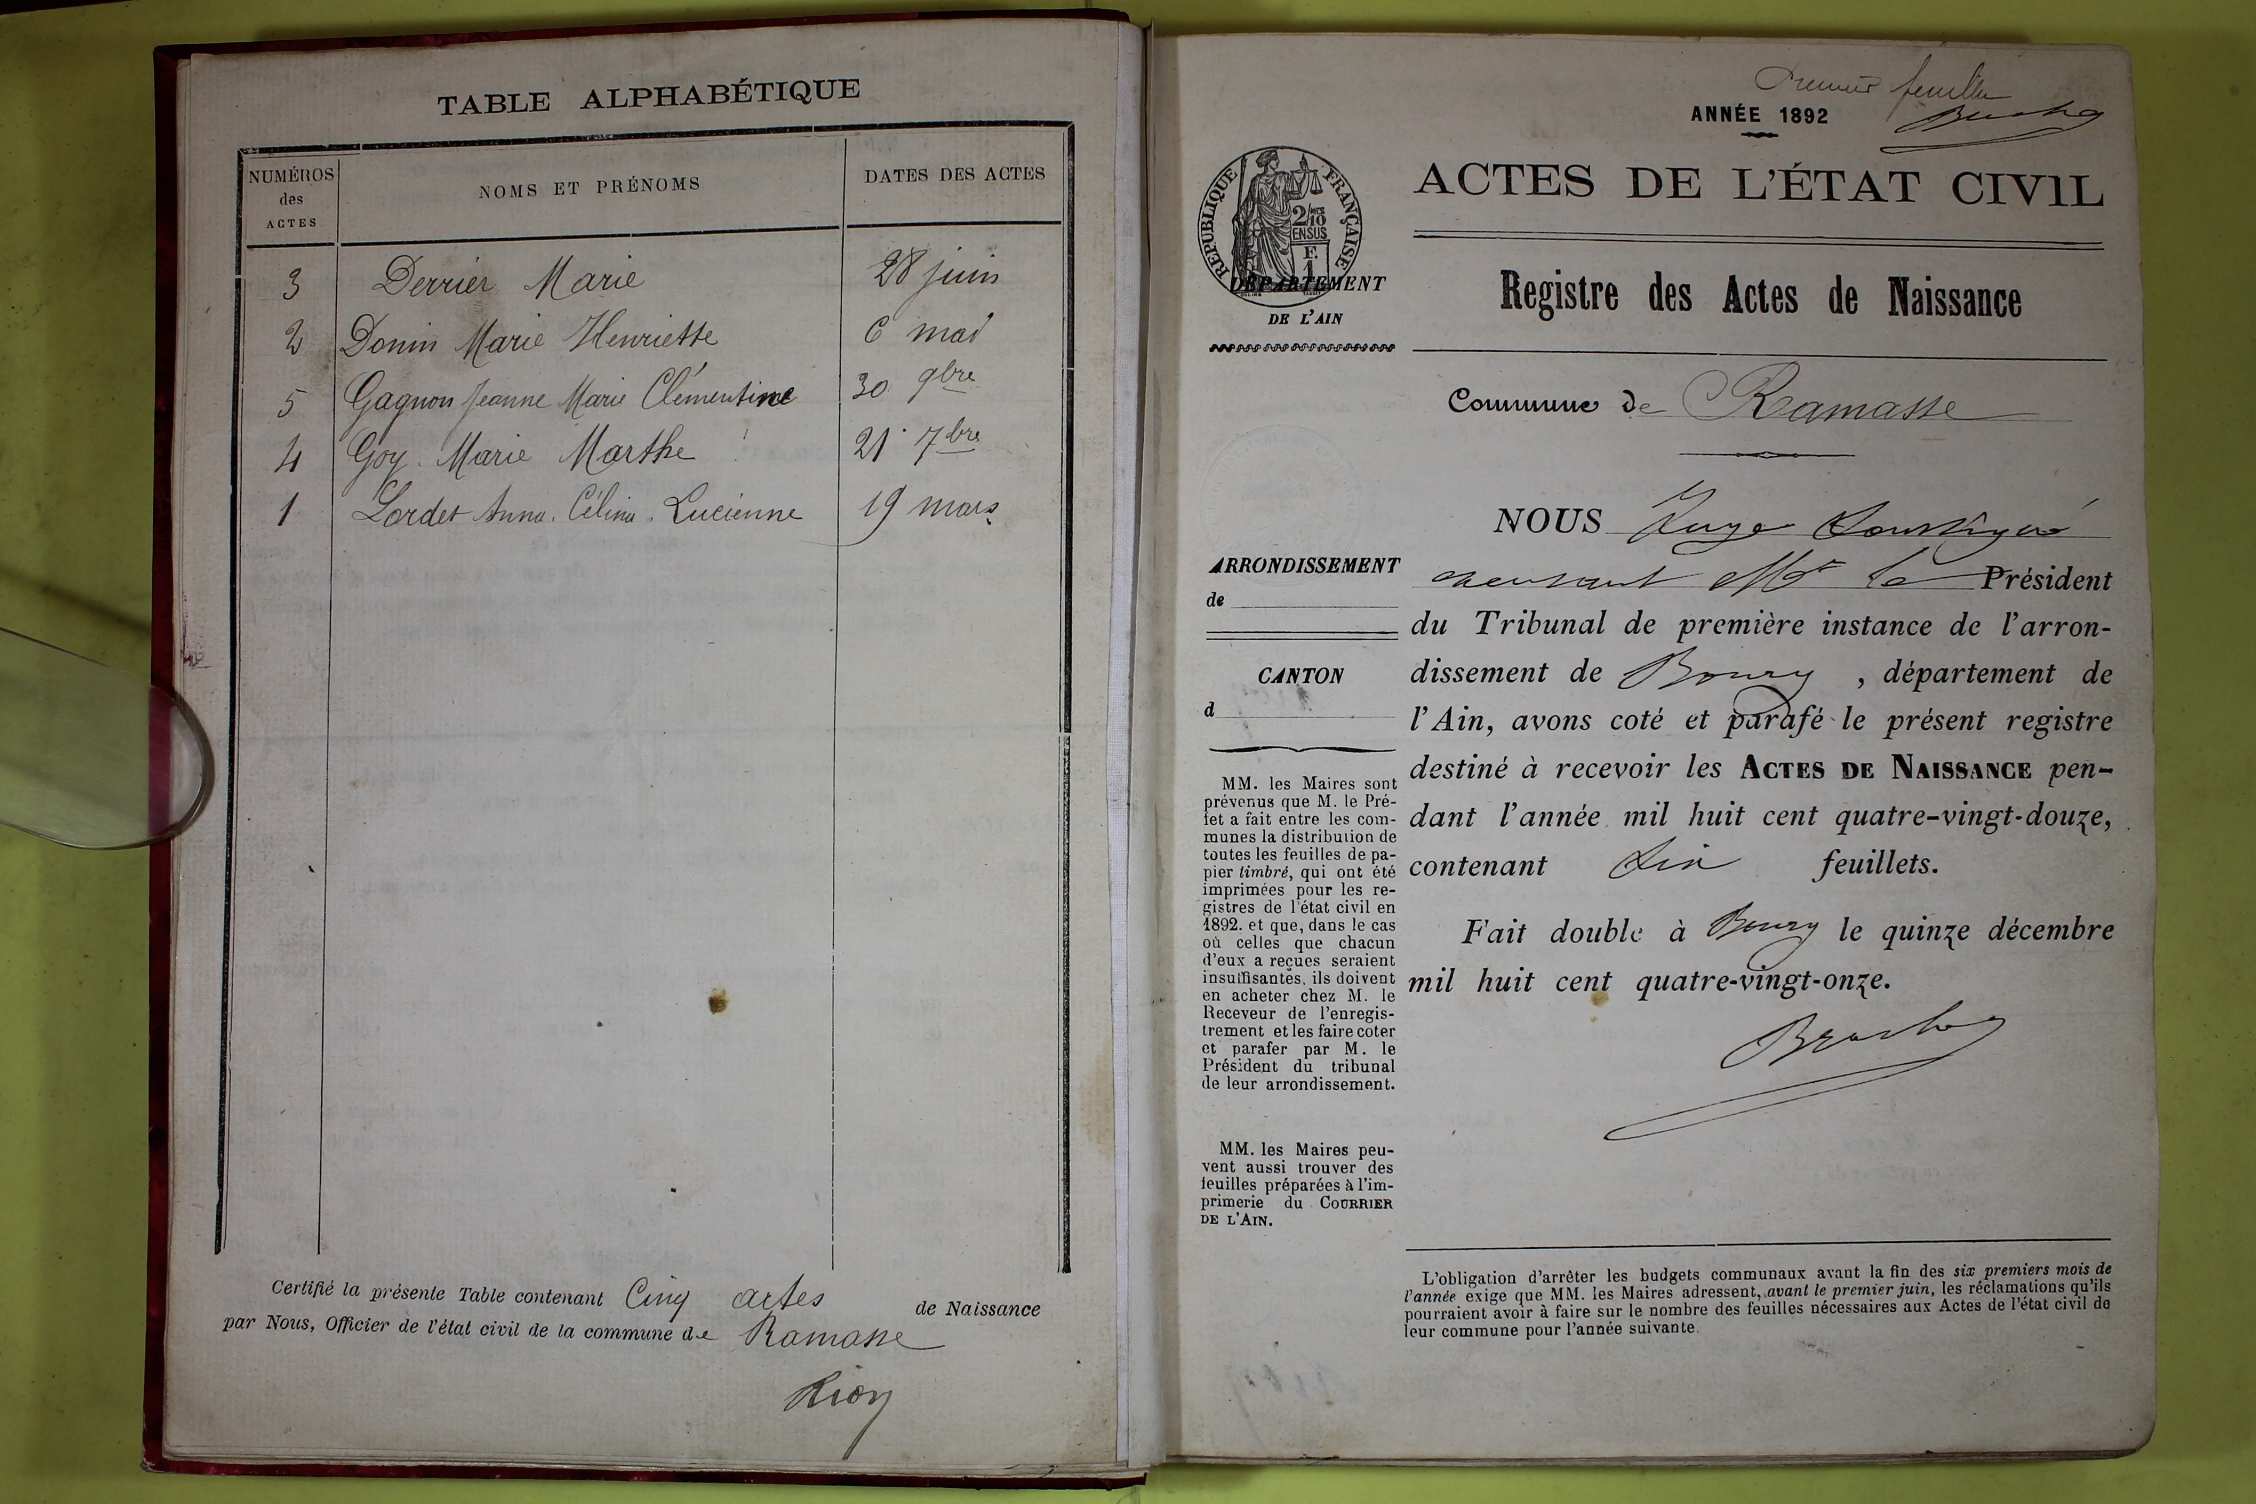 TABLE ALPHABÉTIQUE
NUMÉROS des ACTES
NOMS ET PRÉNOMS
DATES DES ACTES
3 Derrier Marie 28 juin
2 Donin Marie Henriette 6 mai
5 Gagnon Jeanne Marie Clémentine 30 9bre
4 Goy Marie Marthe 21 7bre
1 Lordet Anna Célina Lucienne 19 mars
Certifié la présente Table contenant Cinq actes de Naissance
par Nous, Officier de l'état civil de la commune de Ramasse
Rion
Premier feuillet
ANNÉE 1892
ACTES DE L'ÉTAT CIVIL
RÉPUBLIQUE FRANÇAISE
2/10
EN SUS
F.
1
DÉPARTEMENT
DE L'AIN
Registre des Actes de Naissance
Commune de Ramasse
NOUS Juge
Mr le Président
du Tribunal de première instance de l'arron-
dissement de Bourg, département de
l'Ain, avons coté et parafé le présent registre
destiné à recevoir les ACTES DE NAISSANCE pen-
dant l'année mil huit cent quatre-vingt-douze,
contenant six feuillets.
Fait double à Bourg le quinze décembre
mil huit cent quatre-vingt-onze.
ARRONDISSEMENT
de
CANTON
d
MM. les Maires sont
prévenus que M. le Pré-
fet a fait entre les com-
munes la distribution de
toutes les feuilles de pa-
pier timbré, qui ont été
imprimées pour les re-
gistres de l'état civil en
1892. et que, dans le cas
où celles que chacun
d'eux a reçues seraient
insuffisantes, ils doivent
en acheter chez M. le
Receveur de l'enregis-
trement et les faire coter
et parafer par M. le
Président du tribunal
de leur arrondissement.
MM. les Maires peu-
vent aussi trouver des
feuilles préparées à l'im-
primerie du COURRIER
DE L'AIN.
L'obligation d'arrêter les budgets communaux avant la fin des six premiers mois de
l'année exige que MM. les Maires adressent, avant le premier juin, les réclamations qu'ils
pourraient avoir à faire sur le nombre des feuilles nécessaires aux Actes de l'état civil de
leur commune pour l'année suivante.